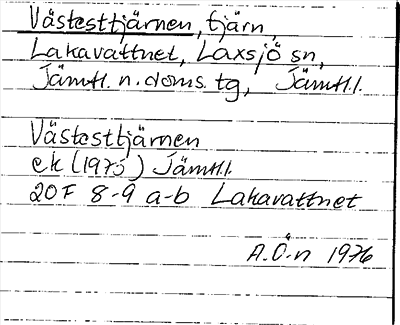 Västesttjärnen, tjärn,
Lakavattnet, Laxsjö sn,
Jämtl. n. doms. tg, Jämtl. l.
Västesttjärnen
ek (1975) Jämtl. l.
20F 8-9 a-b Lakavattnet
A.Ö-n 1976